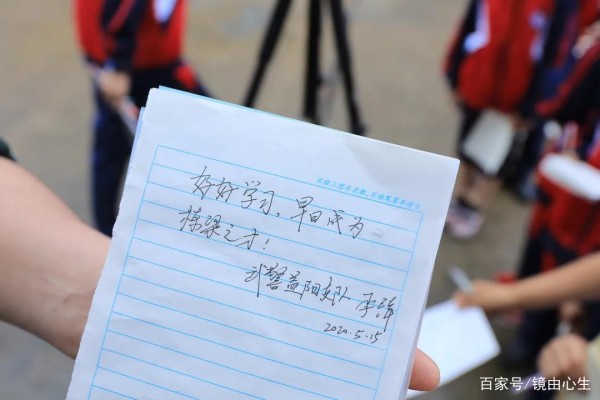 好好学习，早日成为
栋梁之才！
武警益阳支队
2020.5.15
百家号/镜由心生